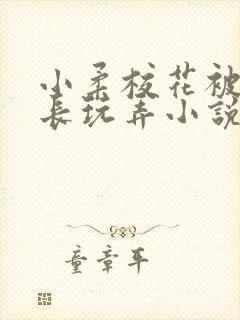 小柔校花被
长玩弄小説
童章平